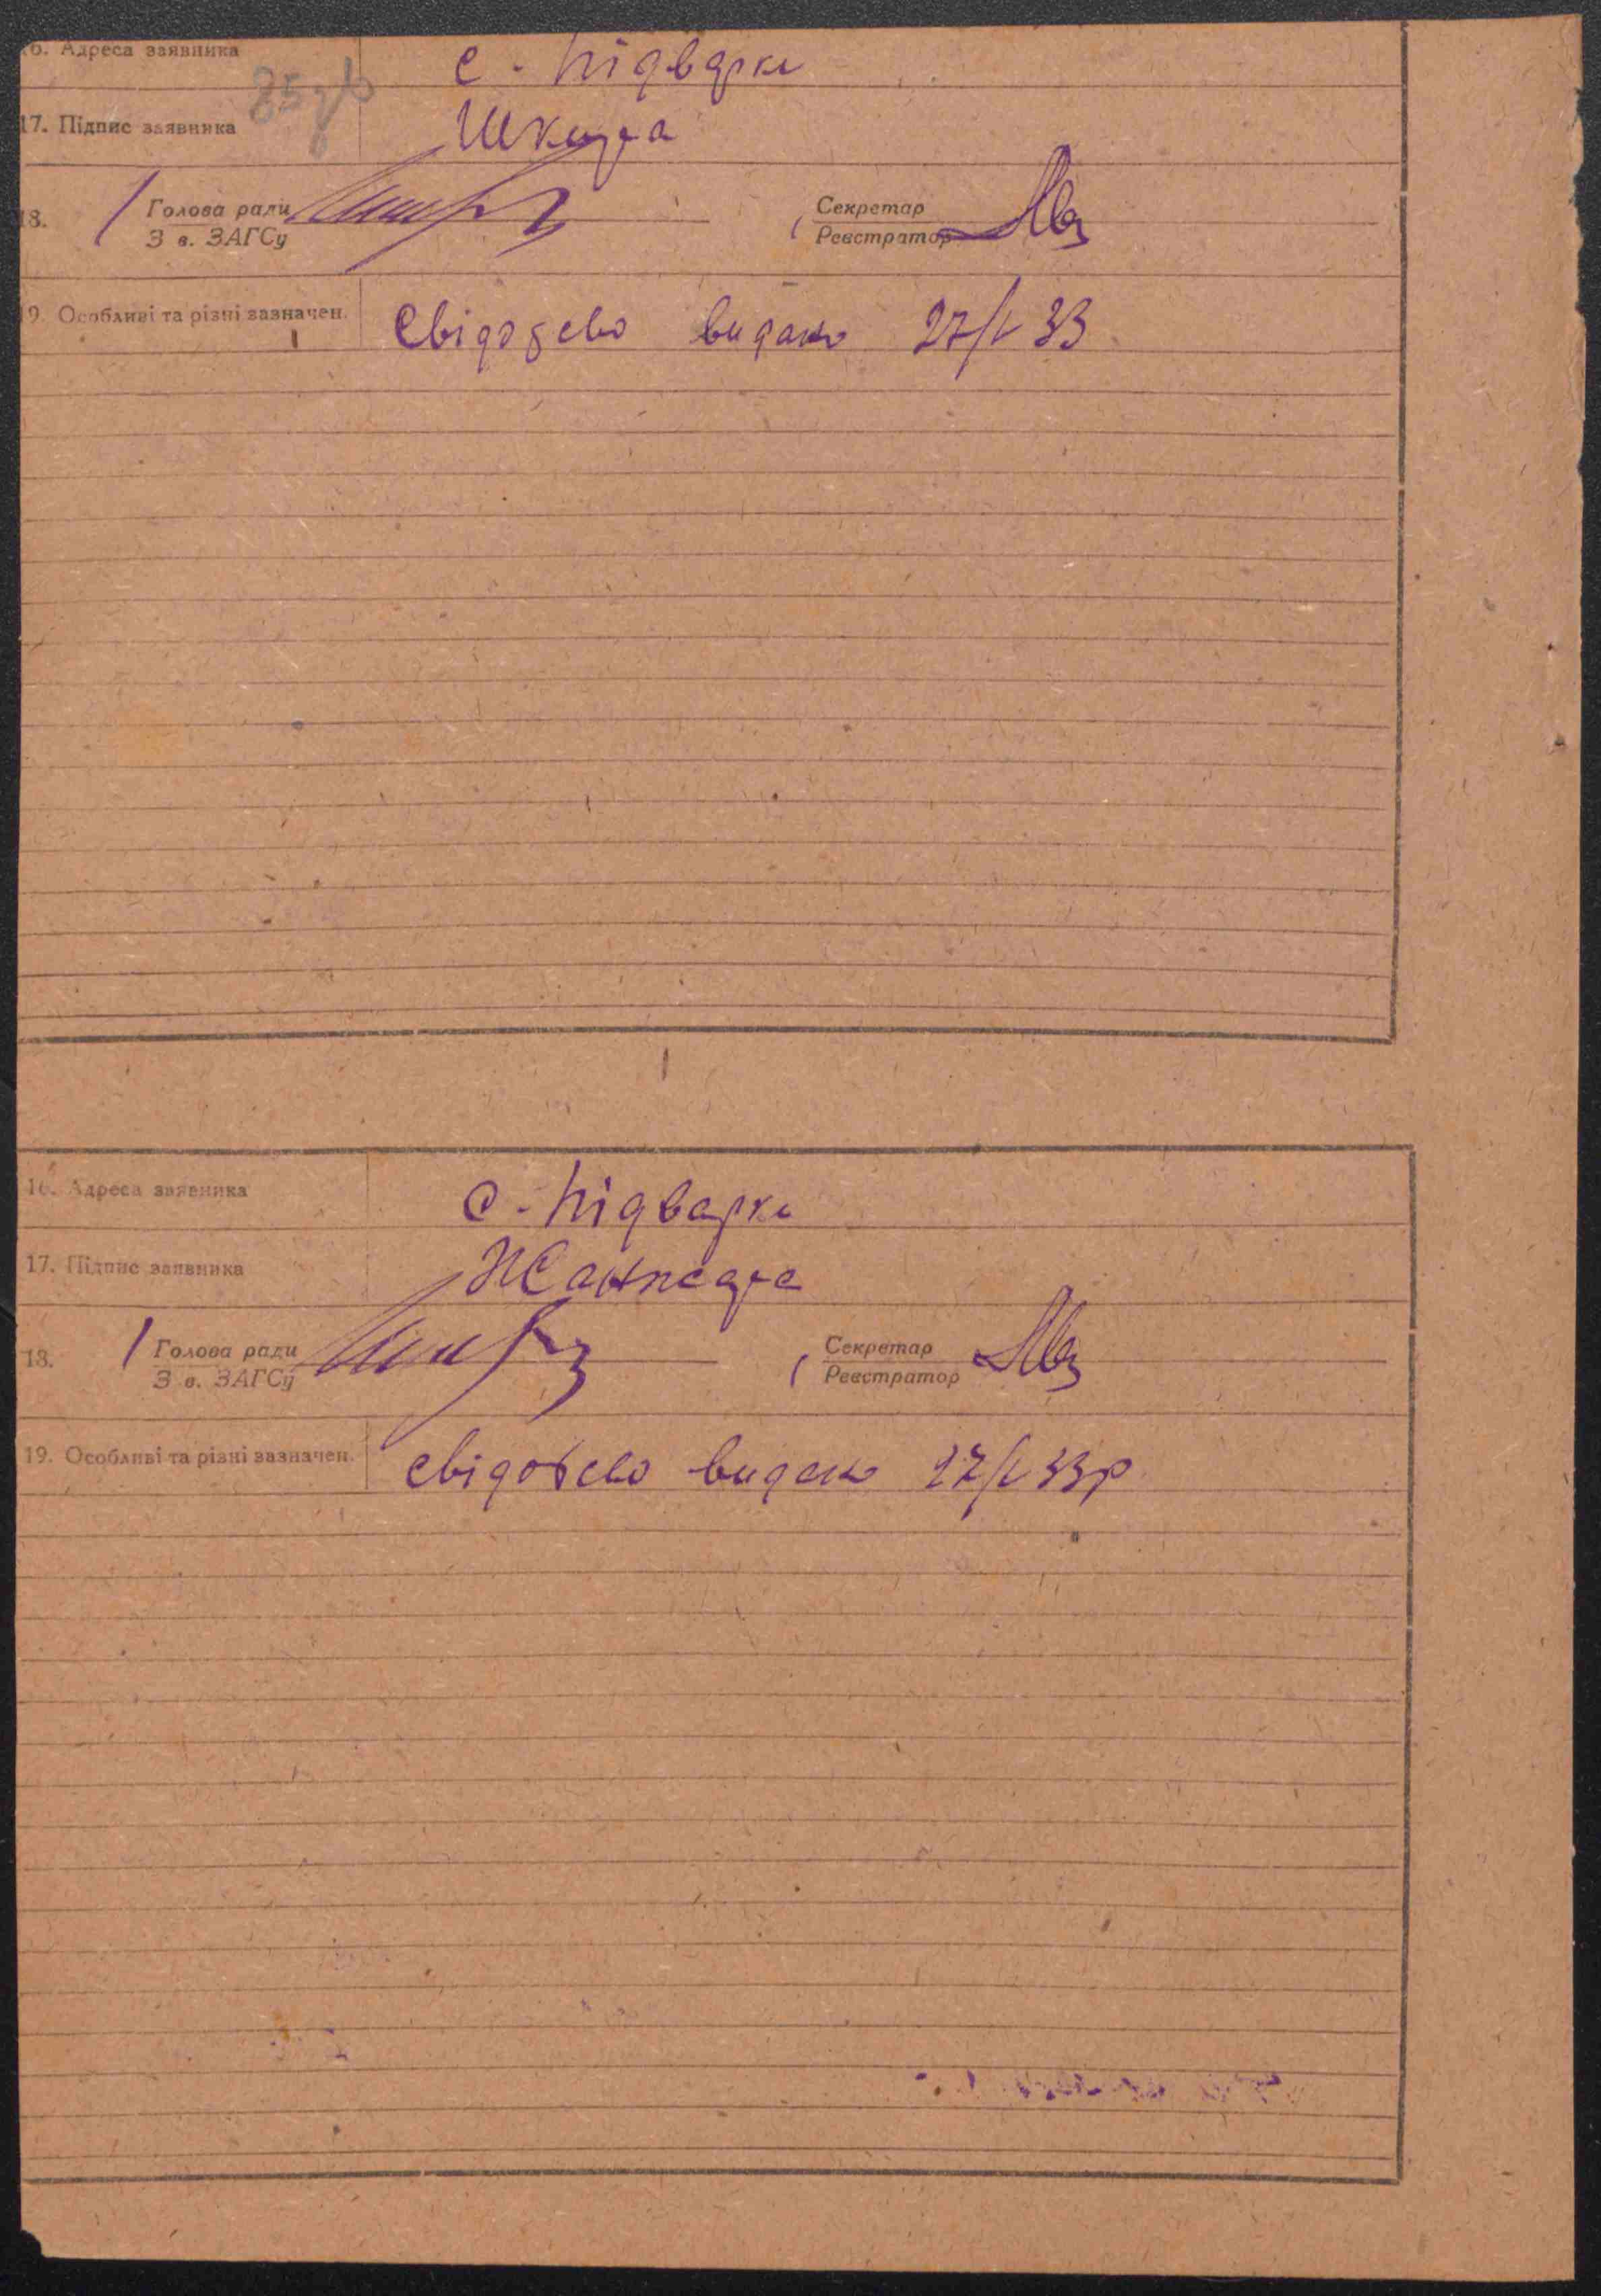 16. Адреса заявника с. Підварки
85 зв
17. Підпис заявника Шкида
18. Голова ради Секретар
З в. ЗАГСу Реєстратор
19. Особливі та різні зазначен. Свідоцво видано 27/V 33
16. Адреса заявника с. Підварки
17. Підпис заявника
18. Голова ради Секретар
З в. ЗАГСу Реєстратор
19. Особливі та різні зазначен. свідоцво видано 27/V 33р